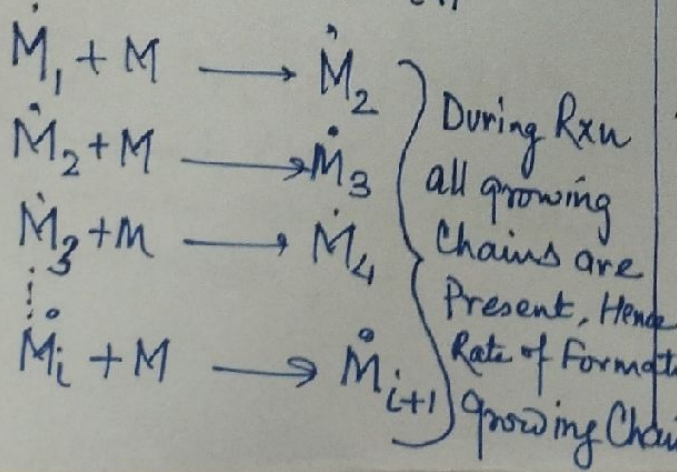 Ṁ₁ + M ⟶ Ṁ₂
Ṁ₂ + M ⟶ Ṁ₃
Ṁ₃ + M ⟶ Ṁ₄
Ṁᵢ + M ⟶ Ṁᵢ₊₁
During Rxn
all growing
Chains are
Present, Hence
Rate of Format
growing Chai